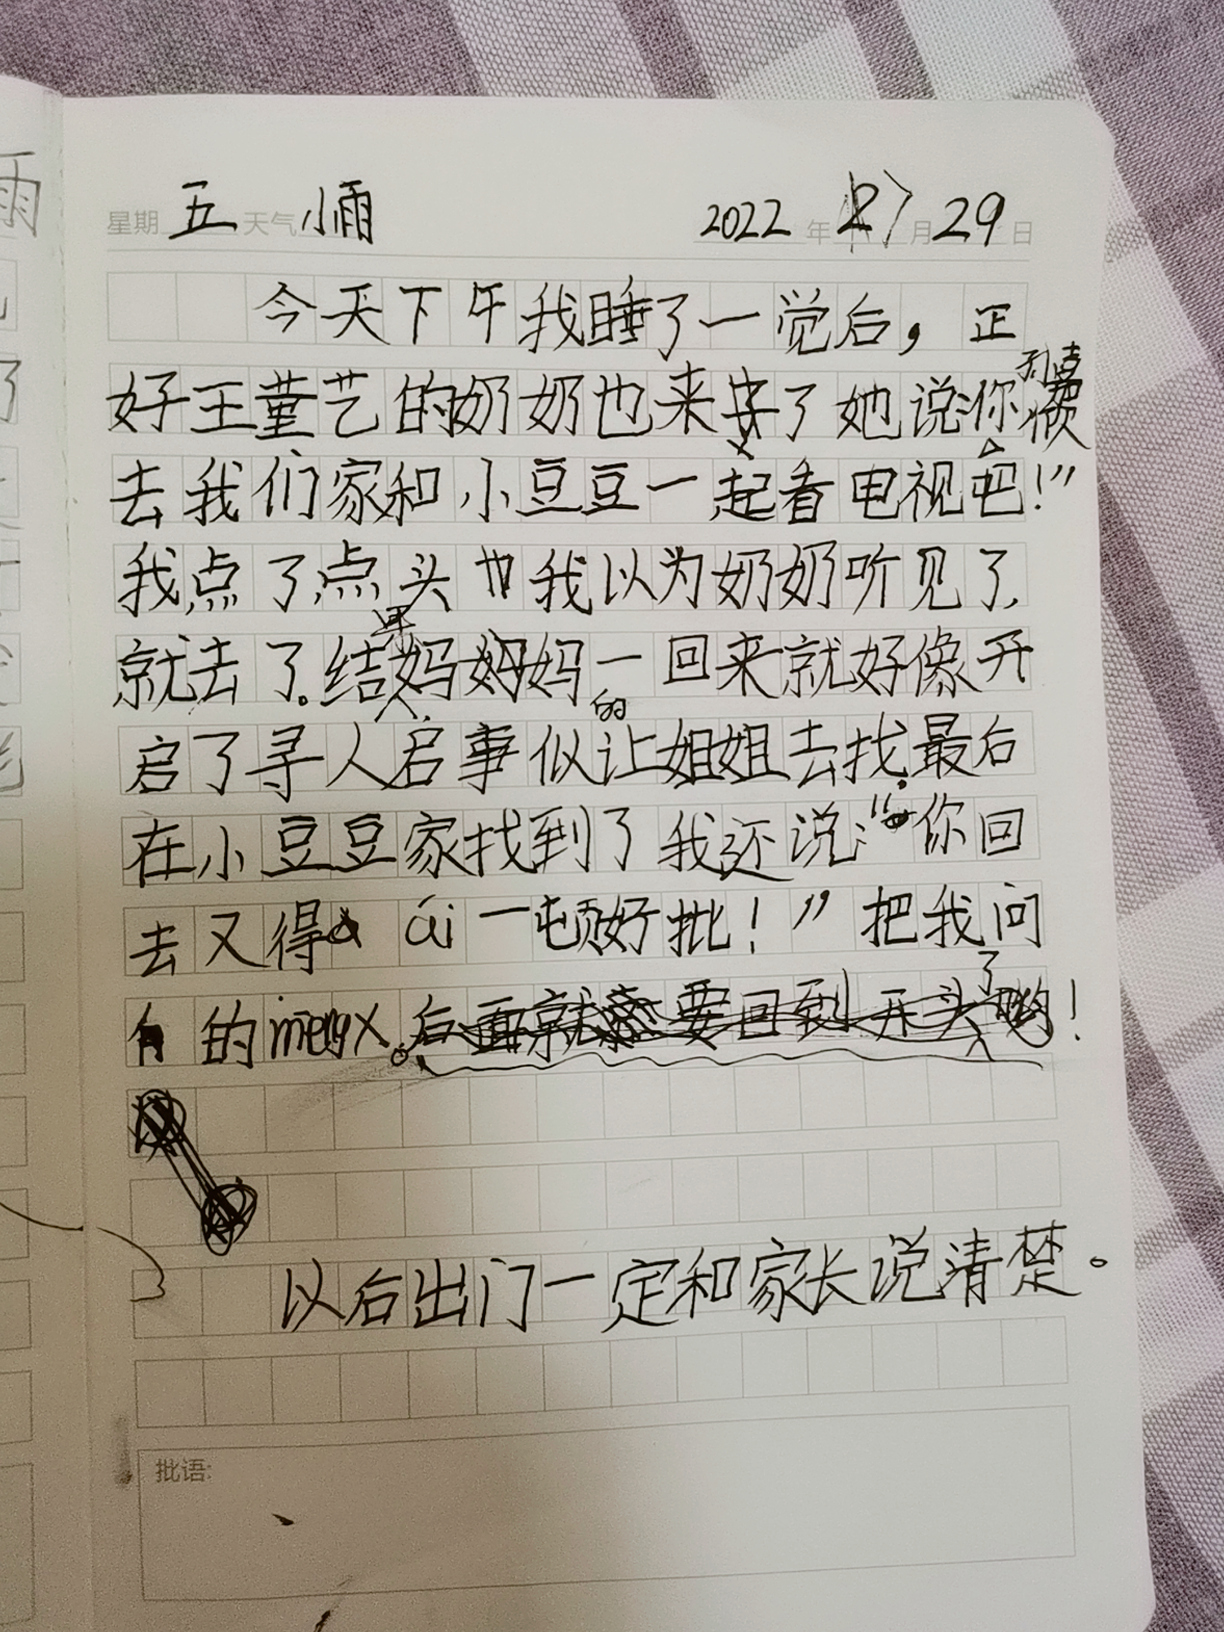 星期 五 天气 小雨 2022 年 7 月 29 日
今天下午我睡了一觉后，正
好王董艺的奶奶也来了她说:你
去我们家和小豆豆一起看电视吧!”
我点了点头 我以为奶奶听见了,
就去了。结果妈妈妈一回来就好像开
启了寻人启事似的让姐姐去找.最后
在小豆豆家找到了我还说:“你回
去又得 ái 一顿好批!”把我问
的
后面就要回到开头了哟!
以后出门一定和家长说清楚。
批语: